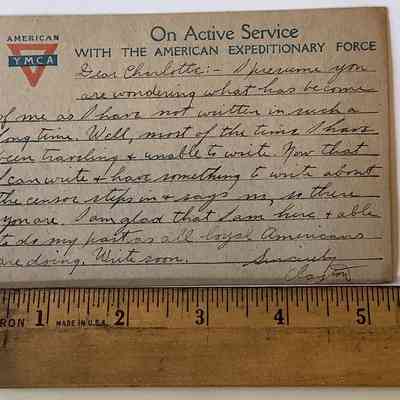 AMERICAN
YMCA
On Active Service
WITH THE AMERICAN EXPEDITIONARY FORCE
Dear Charlotte:- I presume you
are wondering what has become
of me as I have not written in such a
long time. Well, most of the time I have
been traveling & unable to write. Now that
I can write & have something to write about
the censor steps in & says no, so there
you are. I am glad that I am here & able
to do my part as all loyal Americans
are doing. Write soon. Sincerely
RON 1 MADE IN U.S.A. 2 3 4 5